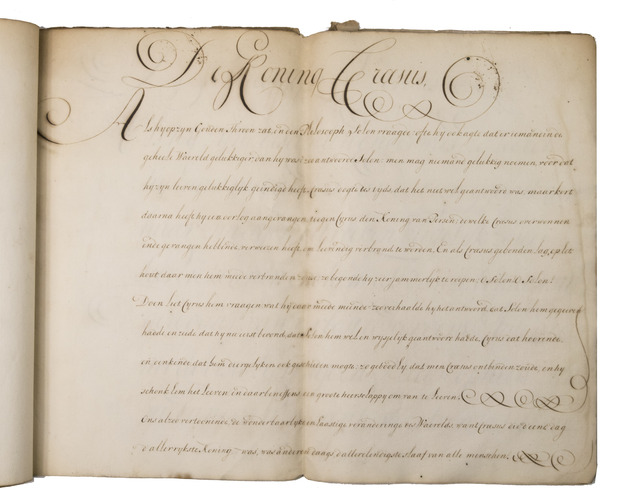 De Koning Crasus.
Als hy op zyn Gouden Throon zat, en den Philosooph Solon vraagde: ofte hy ook agte dat er iemand in de
geheele Waereld gelukkiger dan hy was, zo antwoorde Solon: men mag niemand gelukkig noemen, voor dat
hy zyn leeven gelukkiglyk geëndigd heeft. Crasus dogt tes tyds dat het niet wel geantwoord was, maar kort
daarna heeft hy een oorlog aangevangen, teegen Cyrus den Koning van Persen: dewelke Crasus overwonnen
ende gevangen hebbende, verweesen heeft om leevendig verbrand te worden. En als Crasus gebonden lag, op het
hout daar men hem meede verbranden zoude, zo begonde hy zeer jammerlyk te roepen; ô Solon! ô Solon!
Doen liet Cyrus hem vraagen wat hy daar meede meende zoo verhaalde hy het antwoord, dat Solon hem gegeven
hadde en zeide dat hy nu eerst bevond, dat Solon hem wel en wysselyk geantwoord hadde. Cyrus dat hoorende
en denkende dat hem diergelyken ook geschieden mogte, zo gebood hy dat men Crasus ontbinden zoude, en hy
schonk hem het Leeven, en daarbeneffens een groote heerschappy om van te Leeven.
Ons alzo vertoonende de Wonderbaarlyke en haastige veranderinge des Waerelds, want Crasus die d'eene dag
d'allerrykste Koning was, was anderen daags d'allerelendigste slaaf van alle menschen.